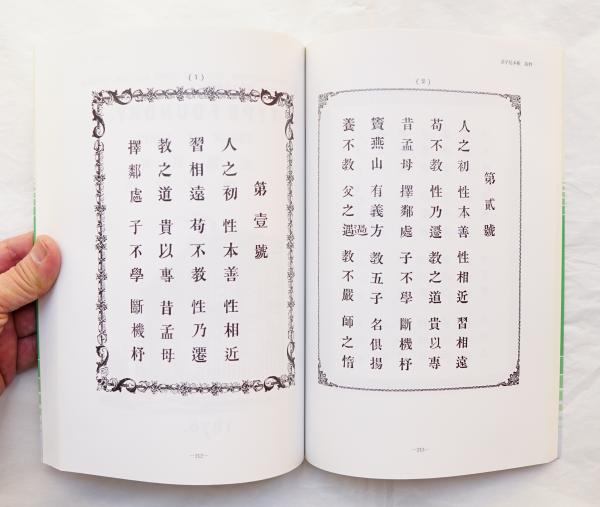 (1)
第壹號
人之初 性本善 性相近
習相遠 苟不教 性乃遷
教之道 貴以專 昔孟母
擇鄰處 子不學 斷機杼
—212—
(2)
第貳號
人之初 性本善 性相近 習相遠
苟不教 性乃遷 教之道 貴以專
昔孟母 擇鄰處 子不學 斷機杼
竇燕山 有義方 教五子 名俱揚
養不教 父之遇 過 教不嚴 師之惰
—213—